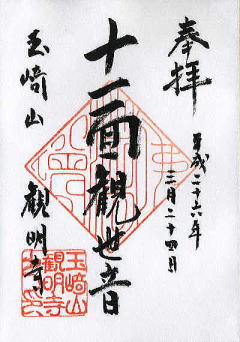 奉拝
平成二十六年
三月二十四日
十一面観世音
玉﨑山
観明寺
玉﨑山
観明寺